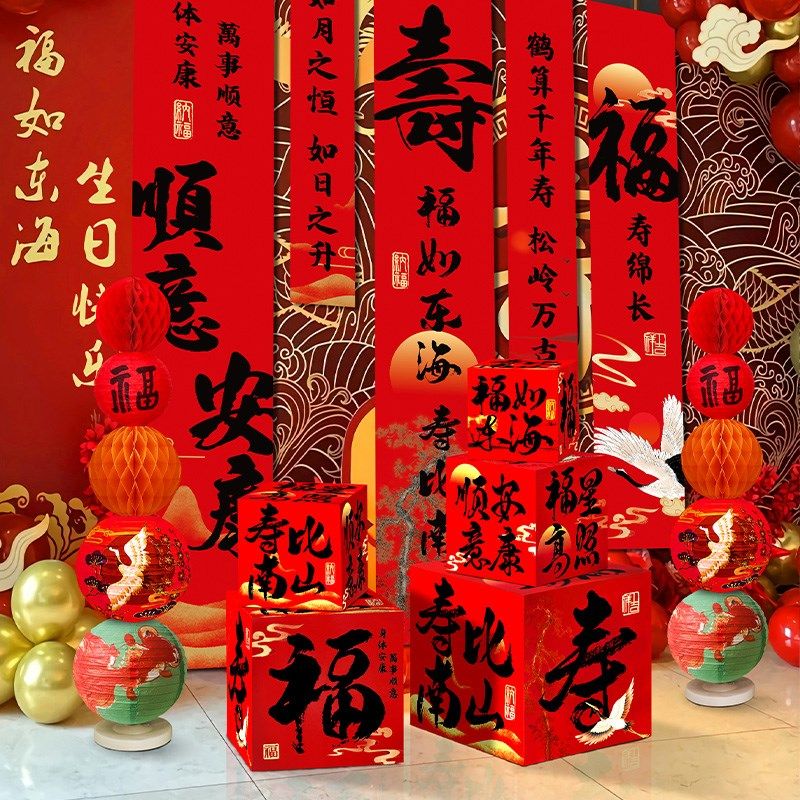 福如东海
生日快乐
体安康
萬事顺意
納福
順意
安康
如月之恒 如日之升
壽
福如东海 寿比南
納福
鹤算千年寿 松岭万古
福
寿绵长
福
福
福如
东海
福
順意
安康
福星
高照
寿比
南山
福
身体安康
萬事顺意
寿比
南山
寿